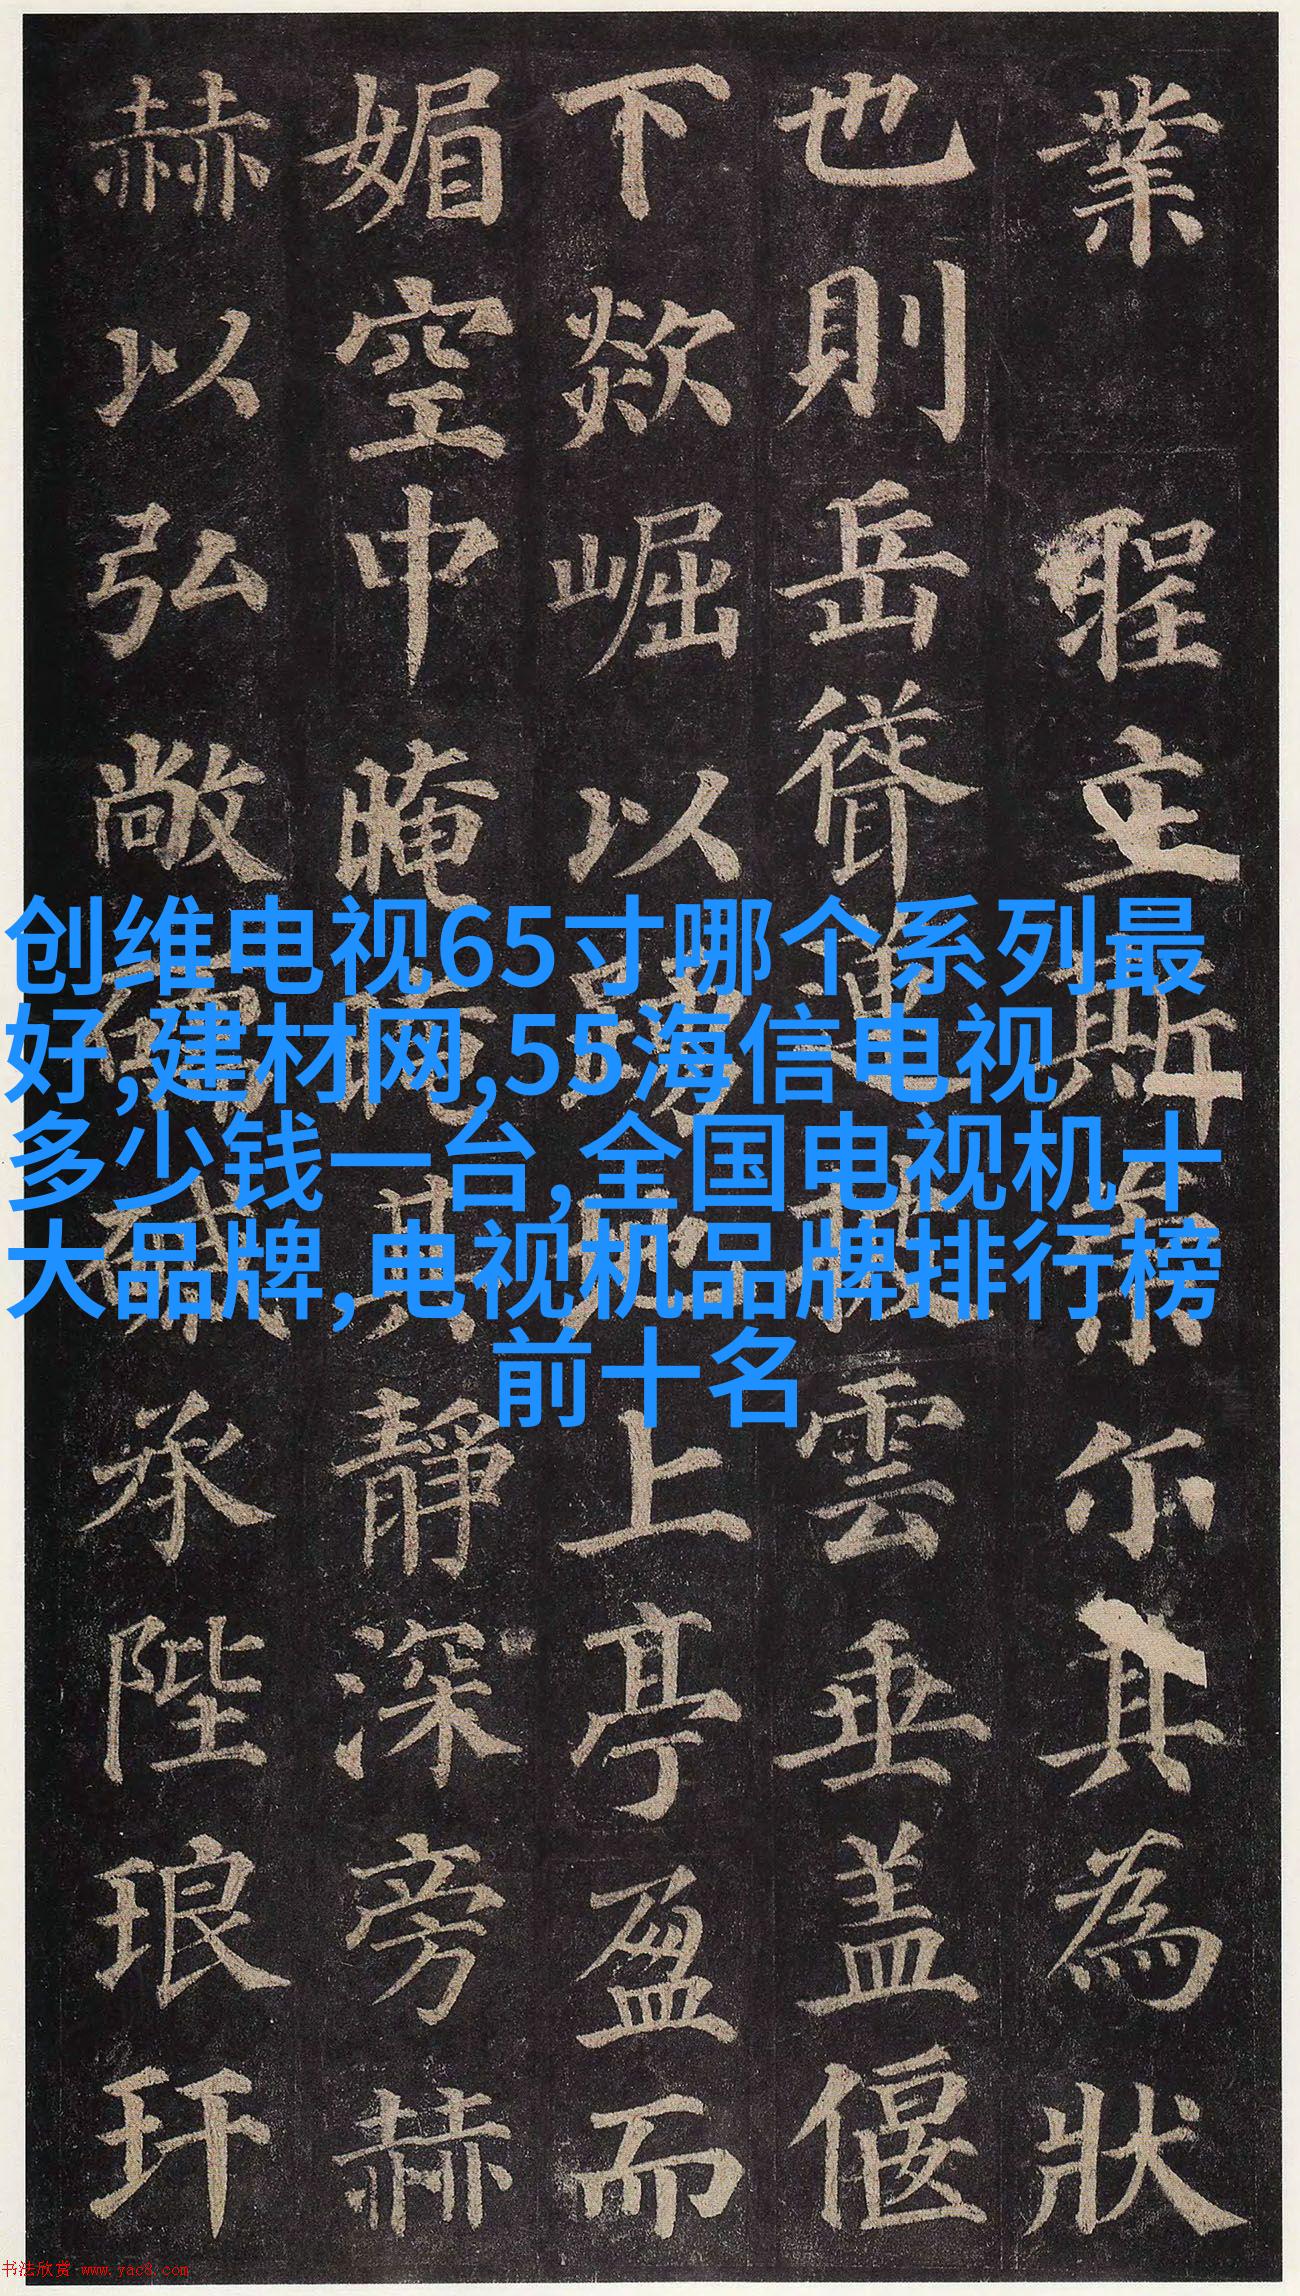 業 聖立斯業尒其為狀
也則岳聳連拔雲垂盖偃
下欻崛以勢圮上亭盈而
媚空中晻晻其靜深旁赫
赫以弘敞碝磩承陛琅玕
创维电视65寸哪个系列最
好,建材网,55海信电视
多少钱一台,全国电视机十
大品牌,电视机品牌排行榜
前十名
书法欣赏 www.yac8.com